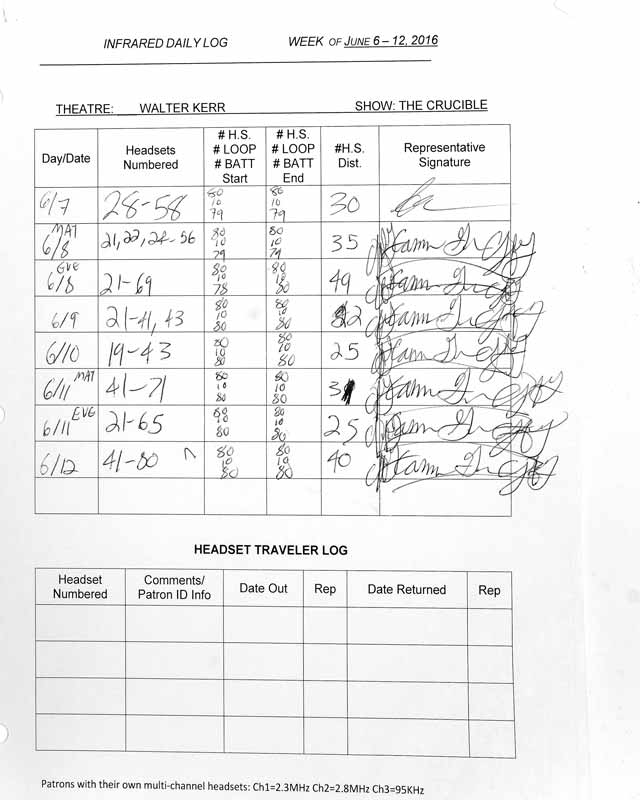 INFRARED DAILY LOG WEEK OF JUNE 6 – 12, 2016
THEATRE: WALTER KERR SHOW: THE CRUCIBLE
Day/Date Headsets Numbered # H.S. # LOOP # BATT Start # H.S. # LOOP # BATT End #H.S. Dist. Representative Signature
6/7 28-58 80 10 79 80 10 79 30
MAT 6/8 21, 22, 24-56 80 10 79 80 10 79 35
EVE 6/8 21-69 80 10 78 80 10 80 49
6/9 21-41, 43 80 10 80 80 10 80 22
6/10 19-43 80 10 80 80 10 80 25
6/11 MAT 41-71 80 10 80 80 10 80
6/11 EVE 21-65 80 10 80 80 10 80 25
6/12 41-80 80 10 80 80 10 80 40
HEADSET TRAVELER LOG
Headset Numbered Comments/ Patron ID Info Date Out Rep Date Returned Rep
Patrons with their own multi-channel headsets: Ch1=2.3MHz Ch2=2.8MHz Ch3=95KHz